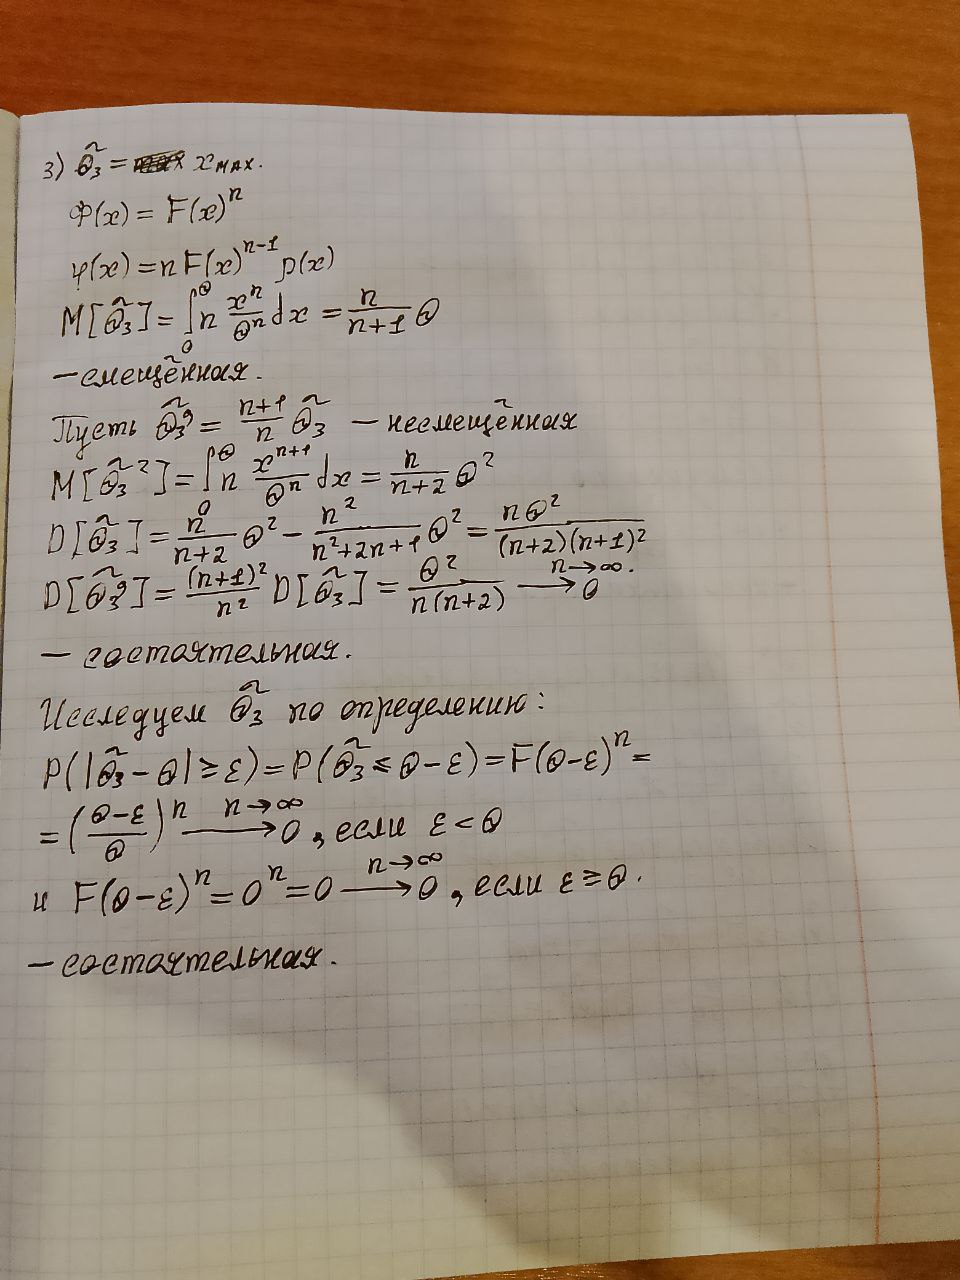 3) θ̃₃ = xₘₐₓ.
Φ(x) = F(x)ⁿ
φ(x) = n F(x)ⁿ⁻¹ p(x)
M[θ̃₃] = ∫₀^θ n xⁿ/θⁿ dx = n/(n+1) θ
— смещённая.
Пусть θ̃₃' = (n+1)/n θ̃₃ — несмещённая
M[θ̃₃²] = ∫₀^θ n xⁿ⁺¹/θⁿ dx = n/(n+2) θ²
D[θ̃₃] = n/(n+2) θ² − n²/(n²+2n+1) θ² = nθ²/((n+2)(n+1)²)
D[θ̃₃'] = (n+1)²/n² D[θ̃₃] = θ²/(n(n+2)) ⟶ 0 n→∞.
— состоятельная.
Исследуем θ̃₃ по определению:
P(|θ̃₃ − θ| ≥ ε) = P(θ̃₃ ≤ θ − ε) = F(θ−ε)ⁿ =
= ((θ−ε)/θ)ⁿ ⟶ 0 n→∞, если ε < θ
и F(θ−ε)ⁿ = 0ⁿ = 0 ⟶ 0 n→∞, если ε ≥ θ.
— состоятельная.